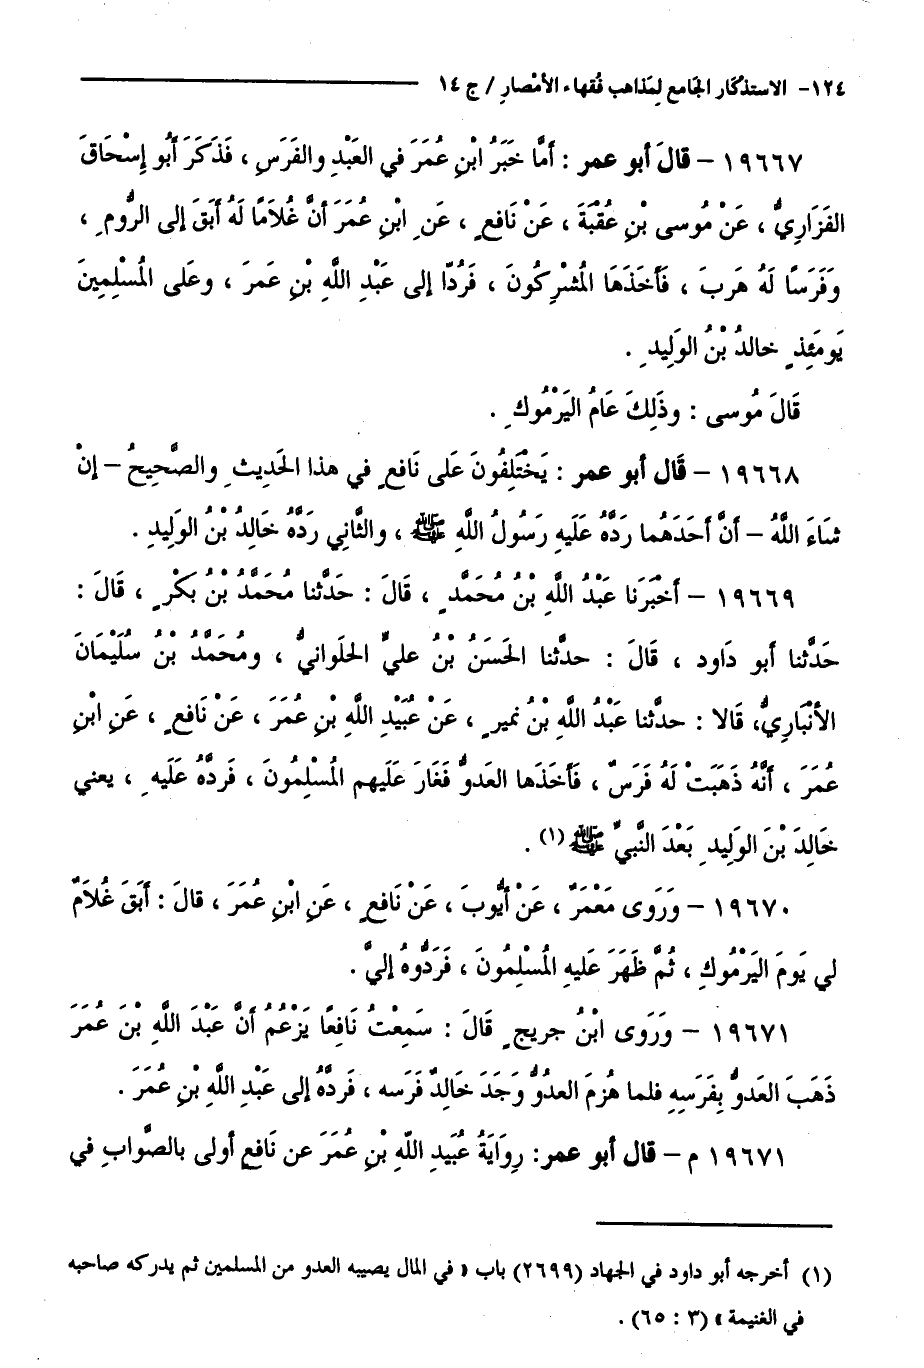 ١٢٤- الاستذكار الجامع لمذاهب فقهاء الأمصار / ج ١٤
١٩٦٦٧ – قالَ أبو عمر : أمَّا خَبَرُ ابْنِ عُمَرَ في العَبْدِ والفَرَسِ ، فَذَكَرَ أَبُو إِسْحَاقَ
الفَزَارِيُّ ، عَنْ مُوسى بْنِ عُقْبَةَ ، عَنْ نَافِعٍ ، عَنِ ابْنِ عُمَرَ أنَّ غُلاَمًا لَهُ أبَقَ إلى الرُّومِ ،
وَفَرَسًا لَهُ هَرَبَ ، فَأَخَذَهَا المُشْرِكُونَ ، فَرُدّا إلى عَبْدِ اللَّهِ بْنِ عَمرَ ، وعَلى المُسْلِمِينَ
يَومَئِذٍ خالدُ بْنُ الوَلِيدِ .
قَالَ مُوسى : وذَلِكَ عَامُ اليَرْمُوكِ .
١٩٦٦٨ – قَال أبو عمر : يَخْتَلِفُونَ عَلى نَافعٍ في هذا الحَديثِ والصَّحِيحُ – إنْ
شَاءَ اللَّهُ – أَنَّ أَحَدَهُما رَدَّهُ عَلَيهِ رَسُولُ اللَّهِ ﷺ ، والثَّانِي رَدَّهُ خَالِدُ بْنُ الوَلِيدِ .
١٩٦٦٩ – أَخبَرَنَا عَبْدُ اللَّهِ بْنُ مُحَمَّدٍ ، قَالَ : حَدَّثنا مُحَمَّدُ بْنُ بَكْرٍ ، قَالَ :
حَدَّثنا أبو دَاود ، قَالَ : حدَّثنا الحَسَنُ بْنُ عليٍّ الحلَوانيُّ ، ومُحَمَّدُ بْنُ سُلَيْمَانَ
الأنْبَارِيُّ، قَالا : حدَّثنا عَبْدُ اللَّهِ بْنُ نميرٍ ، عَنْ عُبَيْدِ اللَّهِ بْنِ عُمَرَ ، عَنْ نَافعٍ ، عَنِ ابْنِ
عُمَرَ ، أنَّهُ ذَهَبَتْ لَهُ فَرَسٌ ، فَأَخَذَها العَدوُّ فَغَارَ عَلَيهم المُسْلِمُونَ ، فَردَّهُ عَلَيهِ ، يعني
خَالِدَ بْنَ الوَليدِ بَعْدَ النَّبيِّ ﷺ (١) .
١٩٦٧٠ – ورَوى مَعْمَرٌ ، عَنْ أَيُّوبَ ، عَنْ نَافعٍ ، عَنِ ابْنِ عُمَرَ ، قالَ : أبَقَ غُلاَمٌ
لي يَومَ اليَرْمُوكِ ، ثُمَّ ظَهَرَ عَليهِ المُسْلِمُونَ ، فَرَدُّوهُ إليَّ .
١٩٦٧١ – ورَوى ابْنُ جريجٍ قَالَ : سَمِعْتُ نَافعًا يَزْعُمُ أنَّ عَبْدَ اللَّهِ بْنَ عُمَرَ
ذَهَبَ العَدوُّ بِفَرَسِهِ فلما هُزِمَ العدُوُّ وَجَدَ خَالِدٌ فَرَسه ، فَردَّهُ إلى عَبْدِ اللَّهِ بْنِ عُمَرَ .
١٩٦٧١ م – قال أبو عمر: رِوَايَةُ عُبَيدِ اللَّهِ بْنِ عُمَرَ عن نَافعٍ أولى بالصَّوابِ في
(١) أخرجه أبو داود في الجهاد (٢٦٩٩) باب « في المال يصيبه العدو من المسلمين ثم يدركه صاحبه
في الغنيمة » (٣ : ٦٥) .